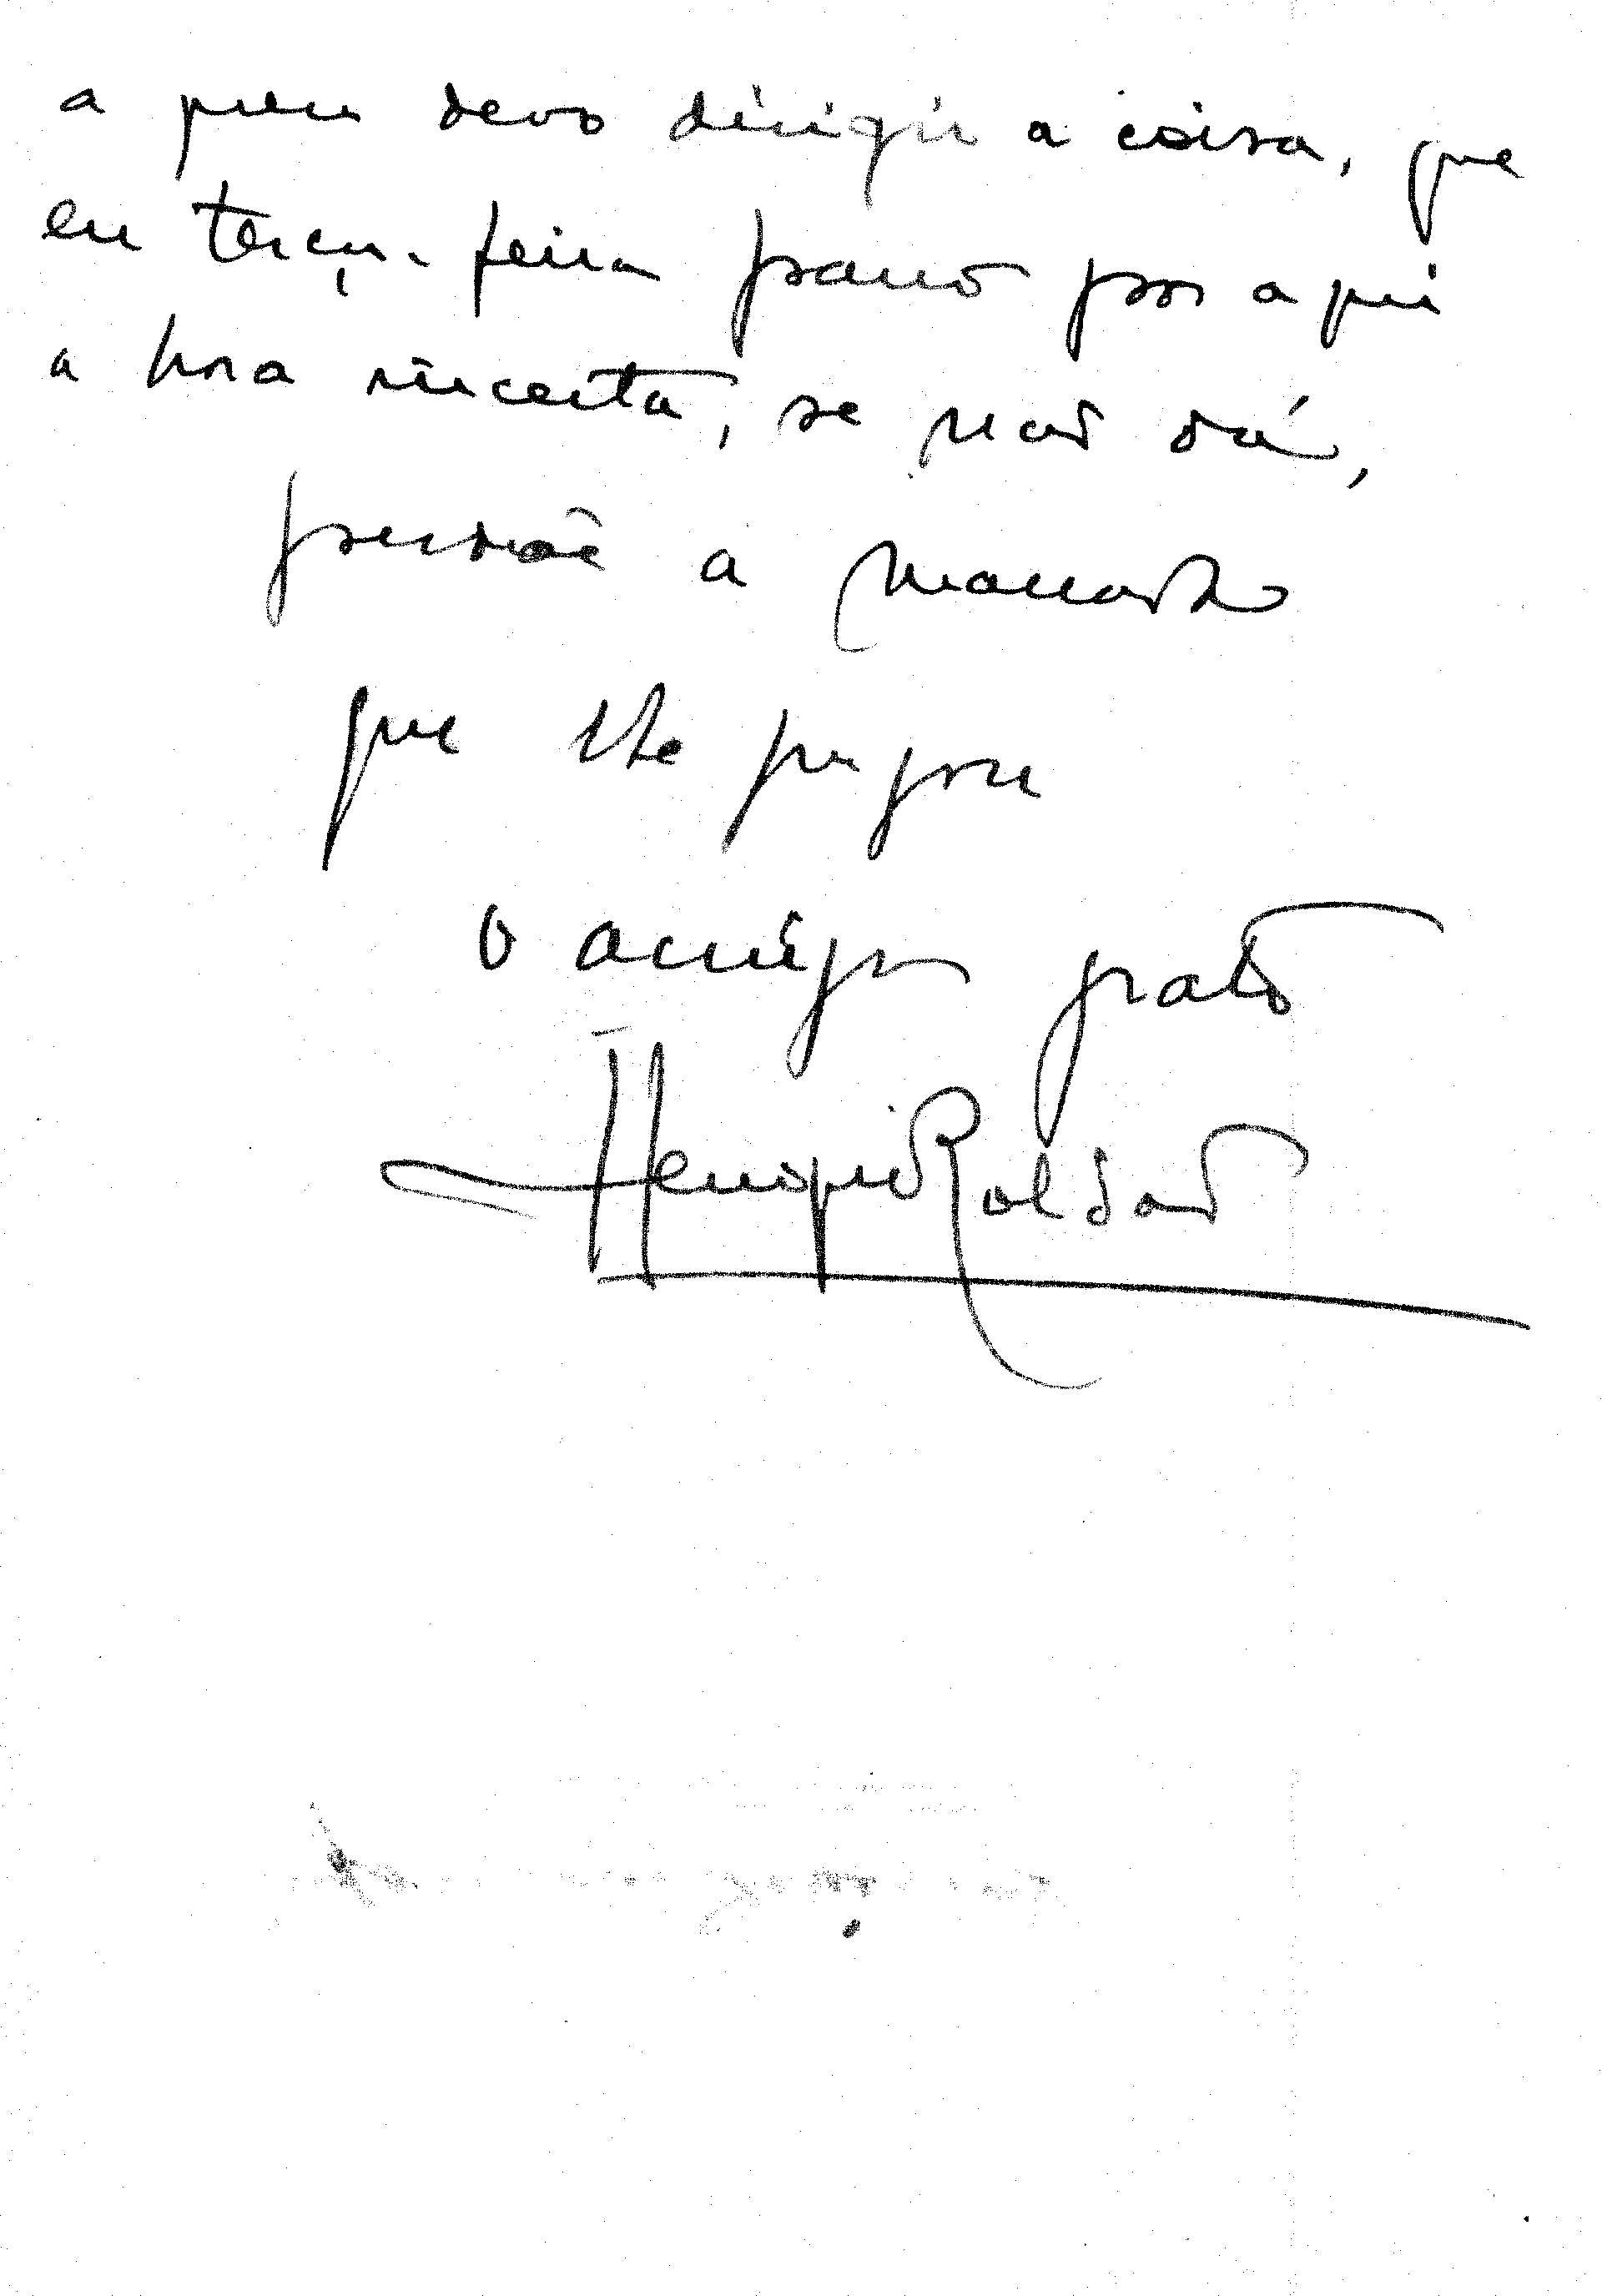 a quem devo dirigir a coisa, que
eu terça-feira passo por aqui
a hora incerta, se não dá,
perdôe a massada
que lhe pregou
o amigo grato
Henrique Roldão